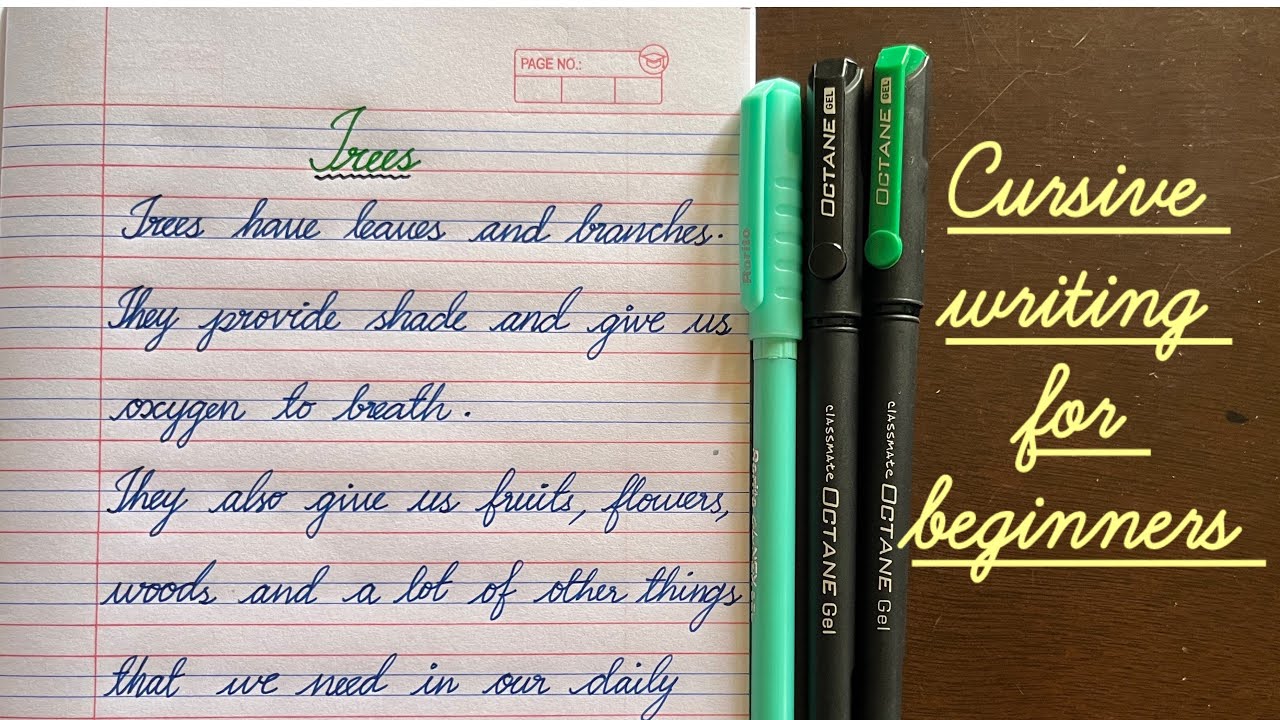 PAGE NO.:
Trees
Trees have leaves and branches.
They provide shade and give us
oxygen to breath.
They also give us fruits, flowers,
woods and a lot of other things
that we need in our daily
Rorito
OCTANE GEL
OCTANE GEL
classmate OCTANE Gel
classmate OCTANE Gel
Cursive
writing
for
beginners